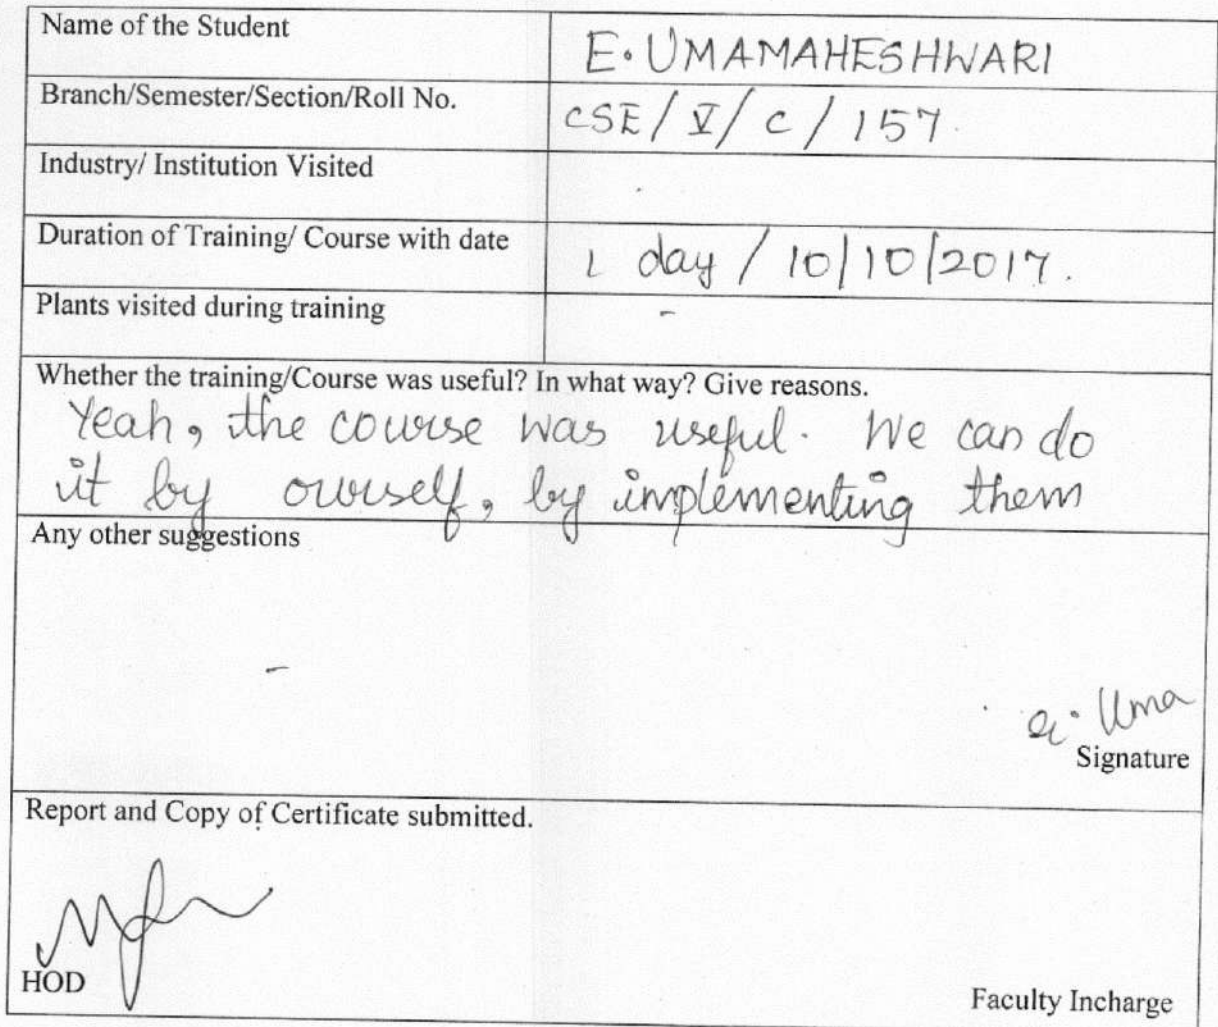 Name of the Student E. UMAMAHESHWARI
Branch/Semester/Section/Roll No. CSE/V/C/157.
Industry/ Institution Visited
Duration of Training/ Course with date 1 day / 10/10/2017.
Plants visited during training -
Whether the training/Course was useful? In what way? Give reasons.
Yeah, the course was useful. We can do
it by ourself, by implementing them
Any other suggestions
-
E. Uma
Signature
Report and Copy of Certificate submitted.
HOD
Faculty Incharge